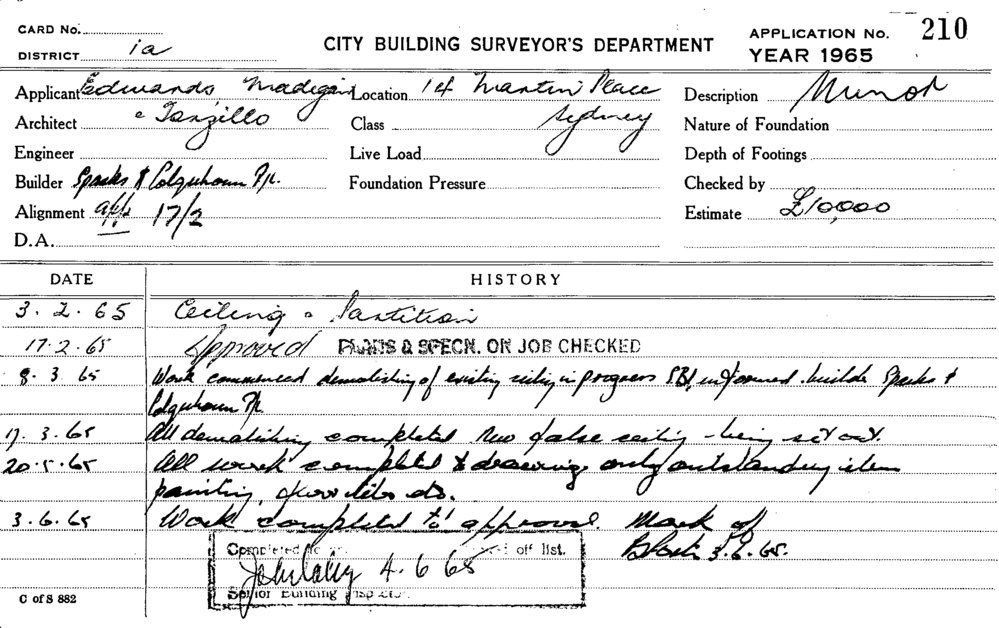 CARD No.
DISTRICT ia
CITY BUILDING SURVEYOR'S DEPARTMENT
APPLICATION No. 210
YEAR 1965
Applicant Edwards, Madigan
Location 14 Martin Place
Description Minor
Architect & Torzillo
Class Sydney
Nature of Foundation
Engineer
Live Load
Depth of Footings
Builder Sparks & Colquhoun P/L.
Foundation Pressure
Checked by
Alignment app 17/2
Estimate £10,000
D.A.
DATE HISTORY
3.2.65 Ceiling & Partition
17.2.65 Approved PLANS & SPECN. ON JOB CHECKED
8.3.65 Work commenced demolishing of existing ceiling in progress informed builder Sparks &
Colquhoun P/L
17.3.65 All demolishing completed New false ceiling being set out.
20.5.65 All work completed & drawing only outstanding item
painting, floor tiles etc.
3.6.65 Work completed to approval. Mark of
3.6.65.
Completed off list.
4.6.65
Senior Building Inspector
C of S 882